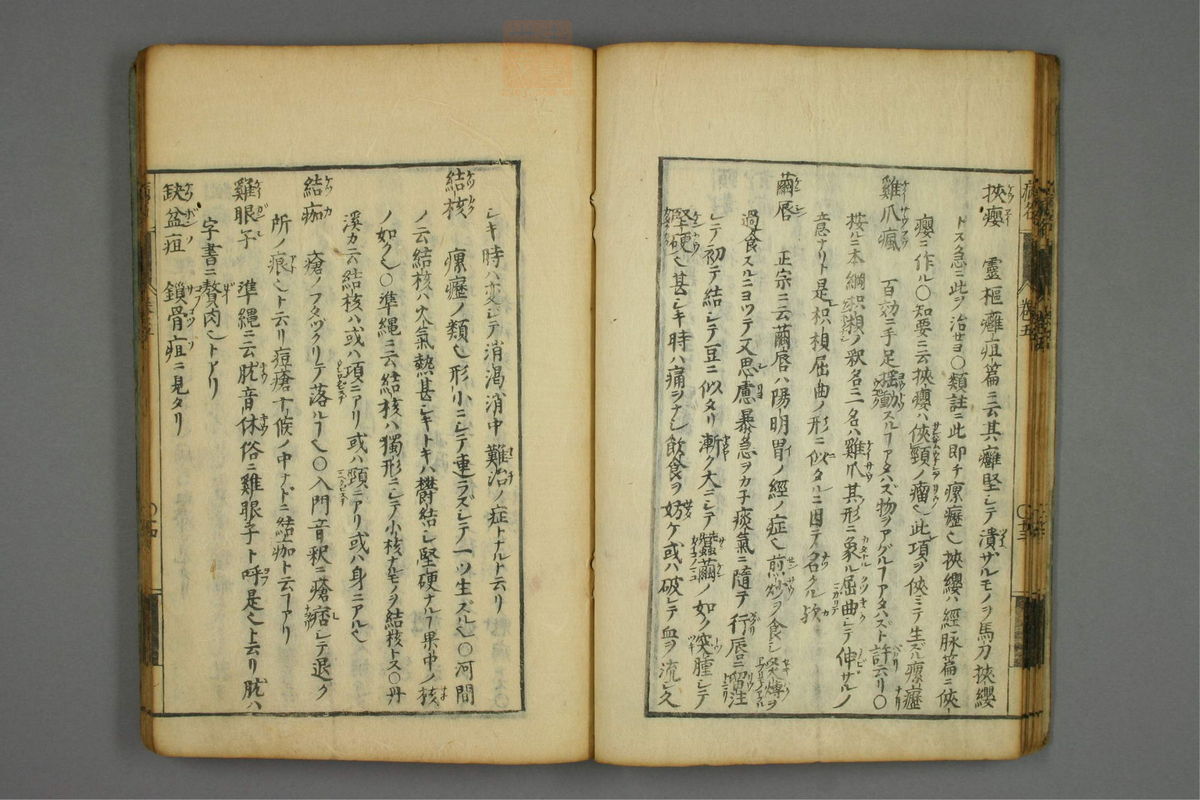 挾癭 靈樞癰疽篇ニ云其癰堅シテ潰ザルモノヲ馬刀挾纓
トス急ニ此ヲ治セヨ○類註ニ此即チ瘰癧也挾纓ハ經脉篇ニ俠
癭ニ作ル○知要ニ云挾癭ハ俠頸ノ瘤也此項ヲ俠ミテ生ズル瘰癧ナリ
雞爪瘋 百効ニ手足搖動スルヿアタハズ物ヲアグルヿアタハズト許云リ○
按ルニ本綱枳椇ノ釈名ニ一名ハ雞爪其形ニ象ル屈曲シテ伸ザルノ
意ナリト是枳ノ椇屈曲ノ形ニ似タルニ因テ名クル歟
繭唇 正宗ニ云繭唇ハ陽明胃ノ經ノ症也煎炒ヲ食シ
過食スルニヨツテ又思慮暴急ヲカチ痰氣ニ隨テ行唇ニ留注
シテ初テ結シテ豆ニ似タリ漸ク大ニシテ蠶繭ノ如ク突腫シテ
堅硬也甚シキ時ハ痛ヲナシ飲食ヲ妨ケ或ハ破シテ血ヲ流シ久
シキ時ハ変シテ消渇消中難治ノ症トナルト云リ
結核 瘰癧ノ類也形小ニシテ連ラズシテ一ツ生ズル也○河間
ノ云結核ハ火氣熱甚シキトキハ鬱結シ堅硬ナルヿ果中ノ核
ノ如ク也○準縄ニ云結核ハ獨形ニシテ小核ナルモノヲ結核トス○丹
溪カ云結核ハ或ハ項ニアリ或ハ頸ニアリ或ハ身ニアル也
結痂 瘡ノフタツクリテ落ルヿ也○入門音釈ニ瘡痞シテ退ク
所ノ痕也ト云リ痘瘡十候ノ中ナドニ結痂ト云ヿアリ
雞眼子 準縄ニ云肬音休俗ニ雞眼子ト呼是也ト云リ肬ハ
字書ニ贅肉也トアリ
缺盆疽 鎖骨疽ニ見タリ
卷五